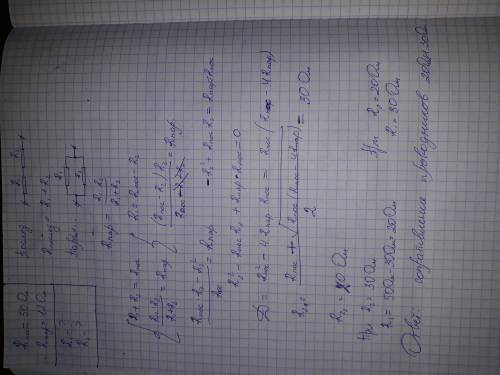 R посл = 50 Ом
R пар = 12 Ом
R₁ - ?
R₂ - ?
послед
R₁ R₂
R послед = R₁ + R₂
парал
R₁
R₂
R пар = R₁R₂ / R₁+R₂
{ R₁ + R₂ = R пос
R₁·R₂ / R₁+R₂ = R пар
} R₁ = R пос - R₂
(R пос - R₂) R₂ / R пос - R₂ + R₂ = R пар
R пос · R₂ - R₂² / R пос = R пар
- R₂² + R пос R₂ = R пар R пос
R₂² - R пос R₂ + R пар · R пос = 0
D = R²пос - 4 R пар · R пос = R пос (R пос - 4 R пар)
R₂,₁ = R пос + √R пос (R пос - 4 R пар) / 2 = 30 Ом
R₂,₂ = 20 Ом
При R₂ = 30 Ом
R₁ = 50 Ом - 30 Ом = 20 Ом
При R₂ = 20 Ом
R₁ = 30 Ом
Ответ: сопротивления проводников 20 Ом и 30 Ом